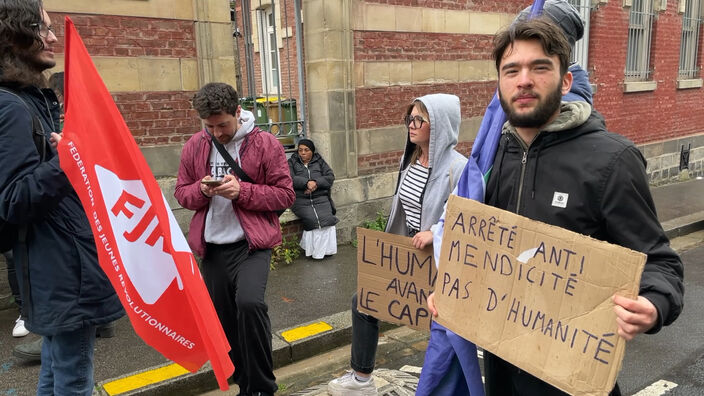 FJR
FEDERATION DES JEUNES REVOLUTIONNAIRES
L'HUM
AVAN
LE CAP
ARRÊTÉ ANTI
MENDICITÉ
PAS D'HUMANITÉ